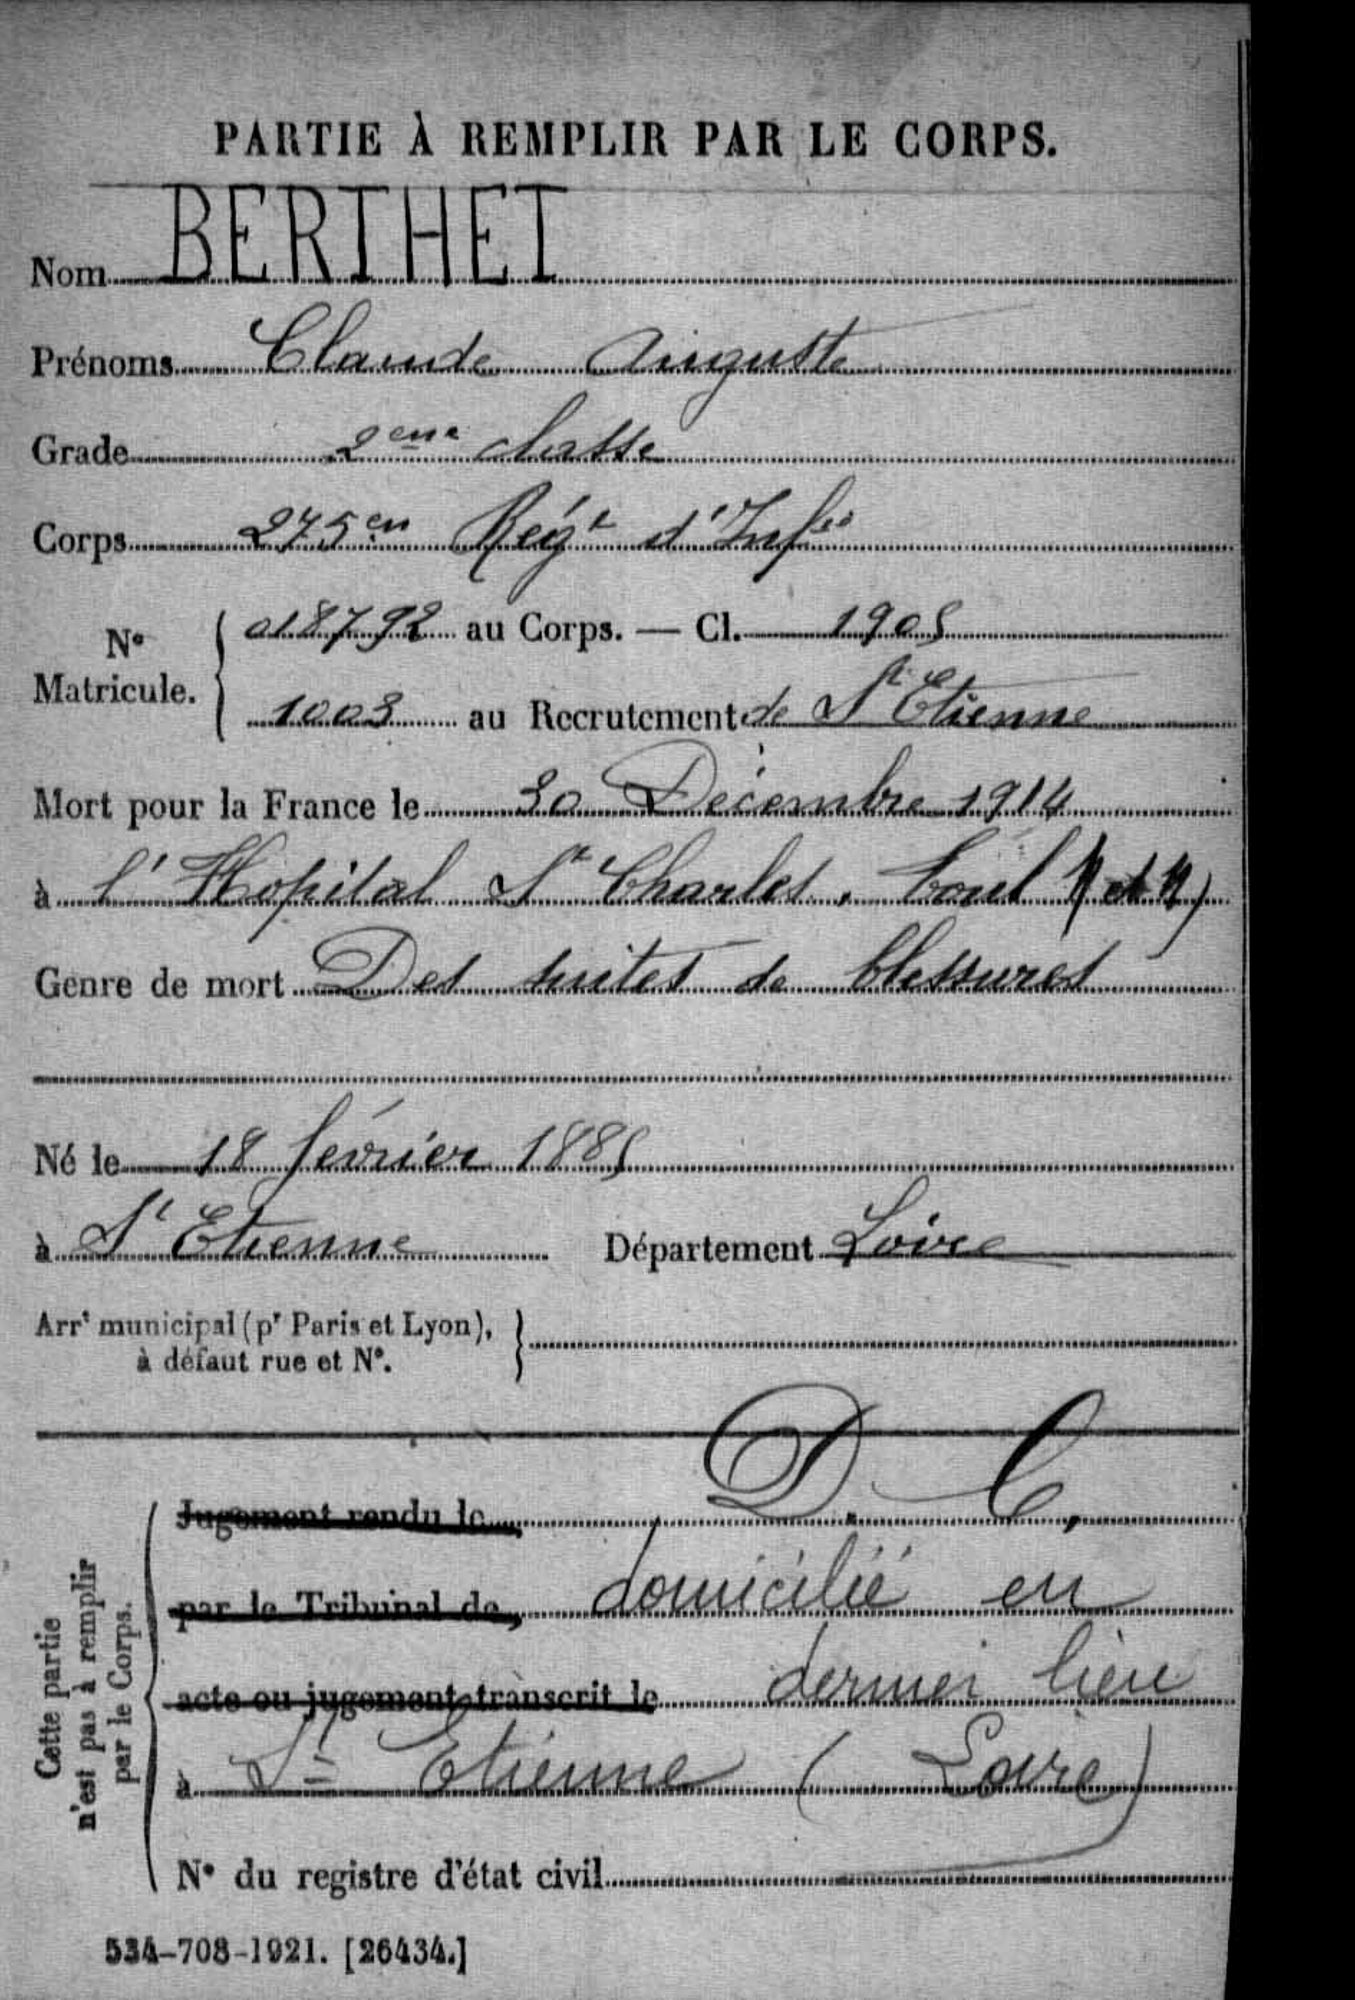 PARTIE À REMPLIR PAR LE CORPS.
Nom BERTHET
Prénoms Claude Auguste
Grade 2eme classe
Corps 275em Régt d'Infie
No Matricule. { 018792 au Corps. — Cl. 1905
1003 au Recrutement de St Etienne
Mort pour la France le 30 Décembre 1914
à l'Hopital St Charles, Toul (M et M)
Genre de mort Des suites de blessures
Né le 18 février 1885
à St Etienne Département Loire
Arrt municipal (pr Paris et Lyon), à défaut rue et No. }
Cette partie n'est pas à remplir par le Corps.
Jugement rendu le D. C.
par le Tribunal de domicilié en
acte ou jugement transcrit le dernier lieu
à St Etienne (Loire)
No du registre d'état civil
534-708-1921. [26434.]